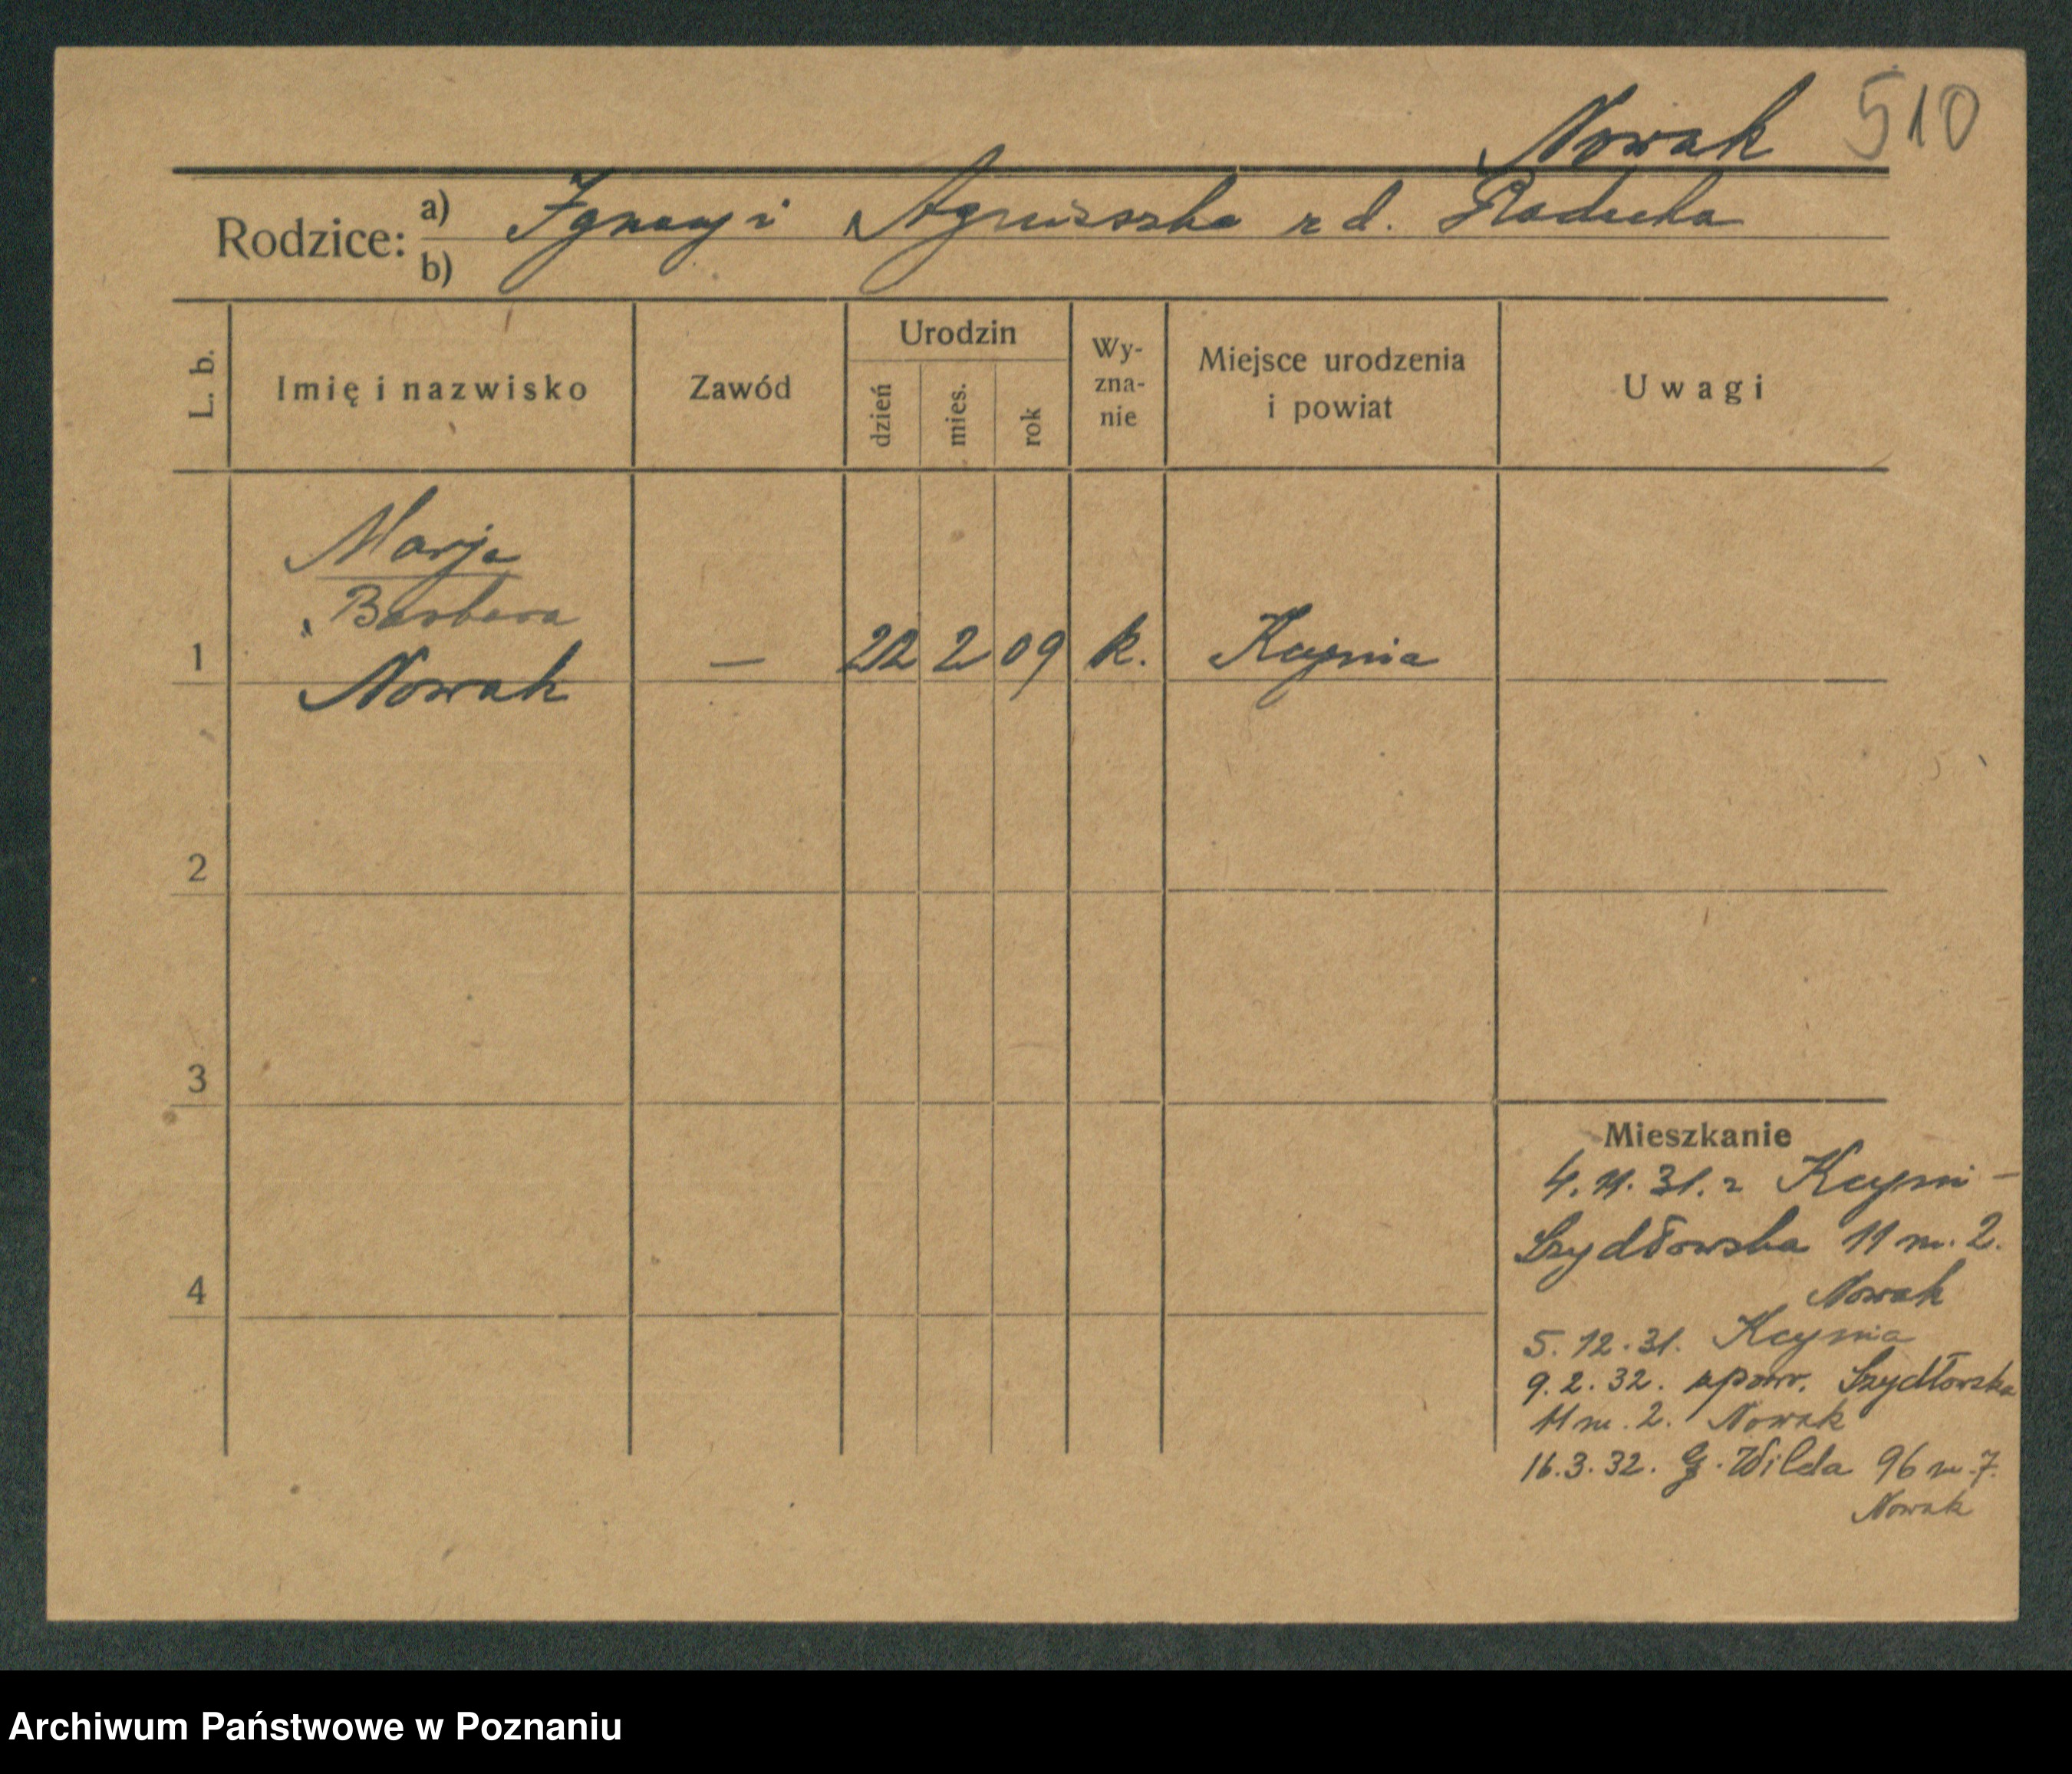 Nowak 510
Rodzice: a) Ignacy i Agnieszka z d. Raducka
b)
L. b. Imię i nazwisko Zawód Urodzin dzień mies. rok Wy-zna-nie Miejsce urodzenia i powiat Uwagi
Marja
Barbara
1 Nowak — 22 2 09 k. Kcynia
2
3
4
Mieszkanie
4. 11. 31. z Kcyni –
Szydłowska 11 m. 2.
Nowak
5. 12. 31. Kcynia
9. 2. 32. spowr. Szydłowska
11 m. 2. Nowak
16. 3. 32. G. Wilda 96 m. 7.
Nowak
Archiwum Państwowe w Poznaniu